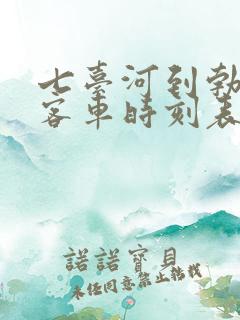 七臺河到勃
客車時刻表
諾諾寶貝
未經同意禁止轉載